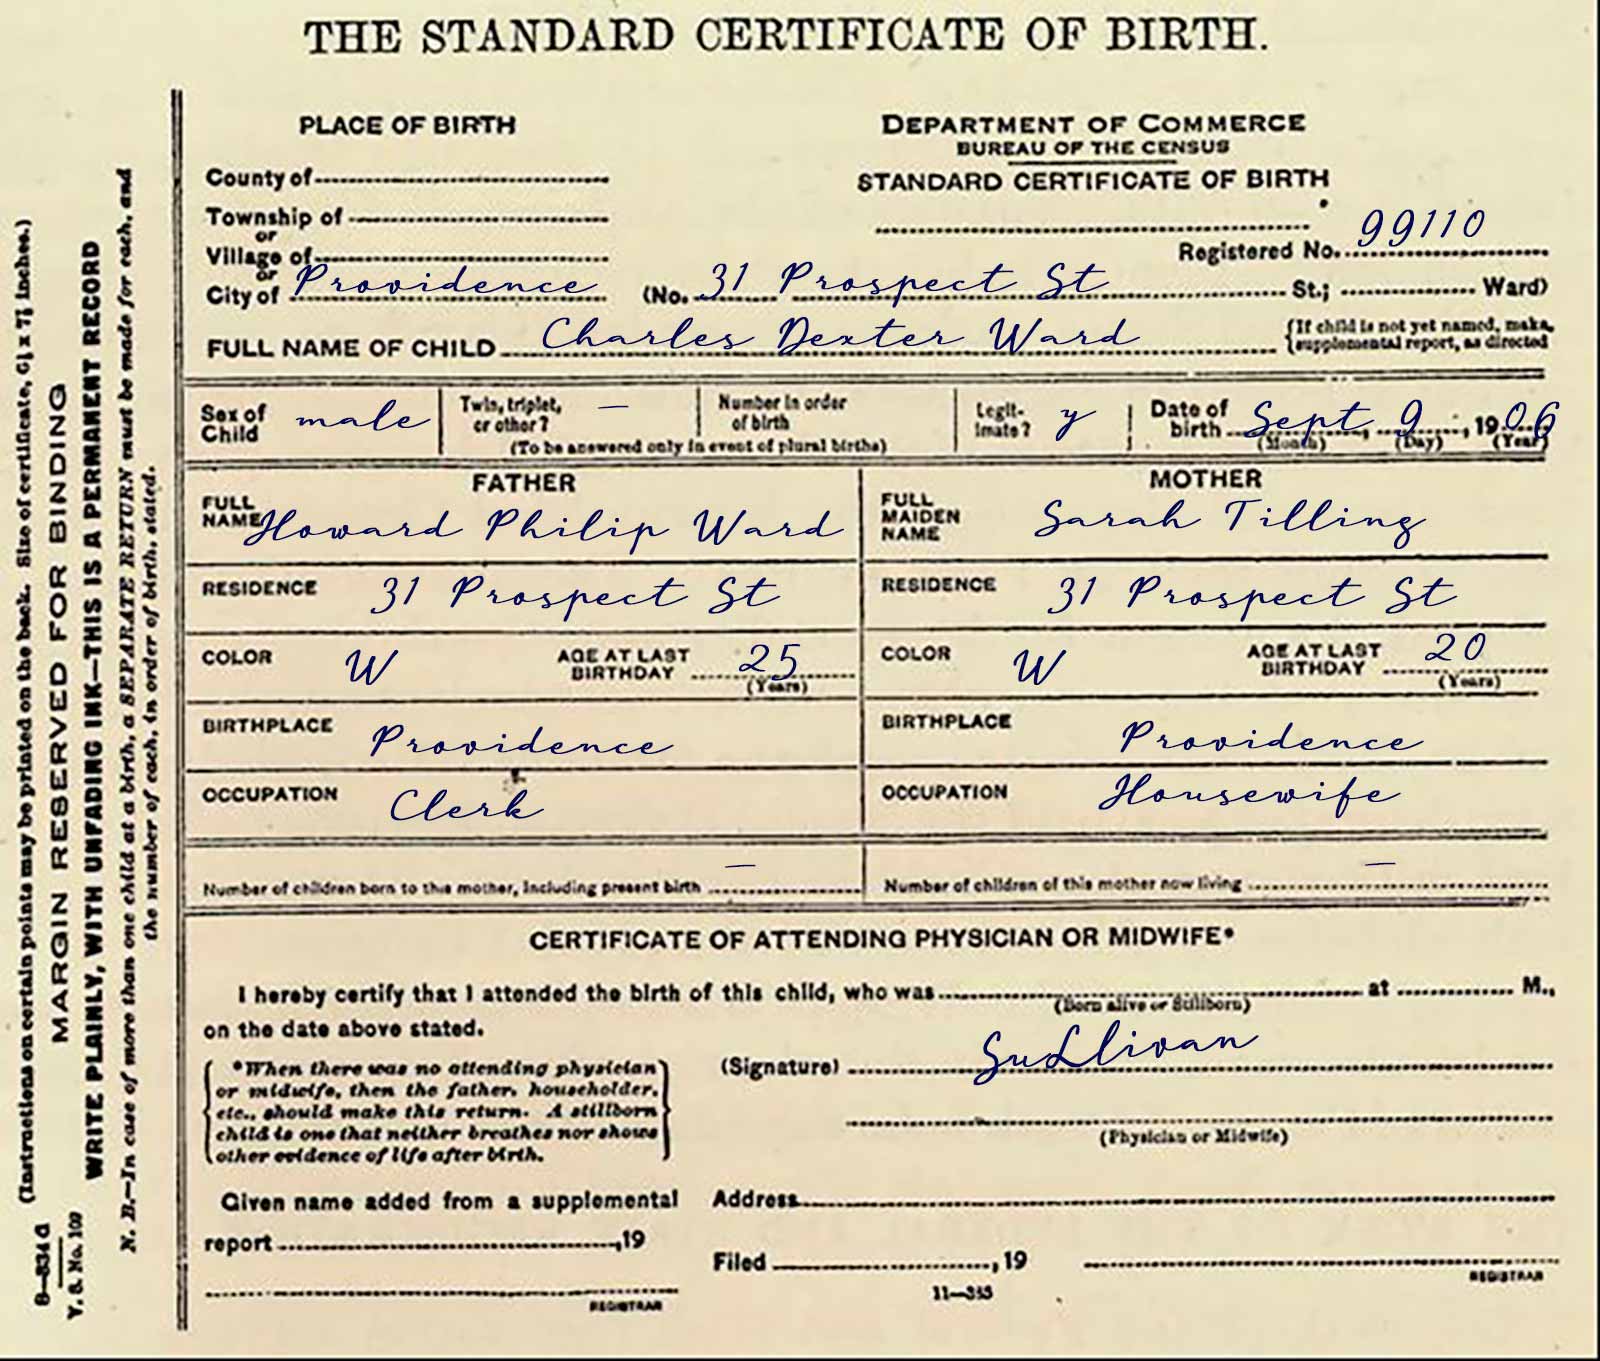 THE STANDARD CERTIFICATE OF BIRTH.
PLACE OF BIRTH
County of
Township of
or
Village of
or
City of Providence
DEPARTMENT OF COMMERCE
BUREAU OF THE CENSUS
STANDARD CERTIFICATE OF BIRTH
Registered No. 99110
(No. 31 Prospect St St.; Ward)
FULL NAME OF CHILD Charles Dexter Ward
{If child is not yet named, make
supplemental report, as directed
Sex of Child male
Twin, triplet, or other? —
Number in order of birth
(To be answered only in event of plural births)
Legitimate? y
Date of birth Sept 9, 1906
(Month) (Day) (Year)
FATHER
FULL NAME Howard Philip Ward
RESIDENCE 31 Prospect St
COLOR W
AGE AT LAST BIRTHDAY 25
(Years)
BIRTHPLACE Providence
OCCUPATION Clerk
MOTHER
FULL MAIDEN NAME Sarah Tilling
RESIDENCE 31 Prospect St
COLOR W
AGE AT LAST BIRTHDAY 20
(Years)
BIRTHPLACE Providence
OCCUPATION Housewife
Number of children born to this mother, including present birth —
Number of children of this mother now living —
CERTIFICATE OF ATTENDING PHYSICIAN OR MIDWIFE*
I hereby certify that I attended the birth of this child, who was at M.,
(Born alive or Stillborn)
on the date above stated.
*When there was no attending physician
or midwife, then the father, householder,
etc., should make this return. A stillborn
child is one that neither breathes nor shows
other evidence of life after birth.
(Signature) SuLlivan
(Physician or Midwife)
Given name added from a supplemental
report ,19
REGISTRAR
Address
Filed , 19
REGISTRAR
11—353
(Instructions on certain points may be printed on the back. Size of certificate, 6½ x 7½ inches.)
MARGIN RESERVED FOR BINDING
WRITE PLAINLY, WITH UNFADING INK—THIS IS A PERMANENT RECORD
N. B.—In case of more than one child at a birth, a SEPARATE RETURN must be made for each, and
the number of each, in order of birth, stated.
8—834 d
V. S. No. 109